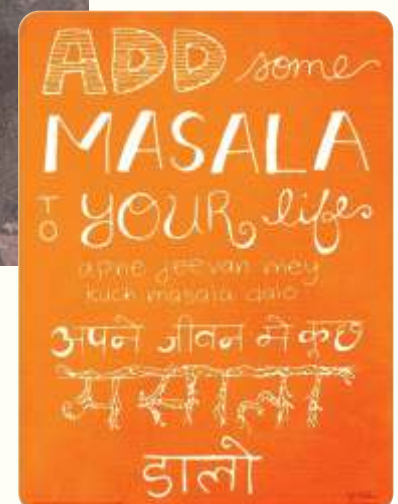 ADD some
MASALA
TO YOUR life
apne jeevan mey
kuch masala dalo
अपने जीवन मे कुछ
मसाला
डालो